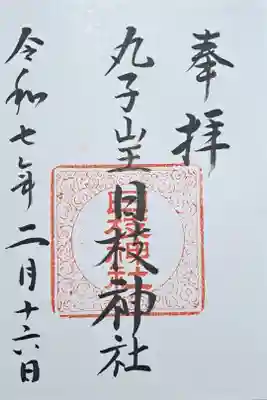 奉拝
丸子山王日枝神社
日枝神社
令和七年二月十六日